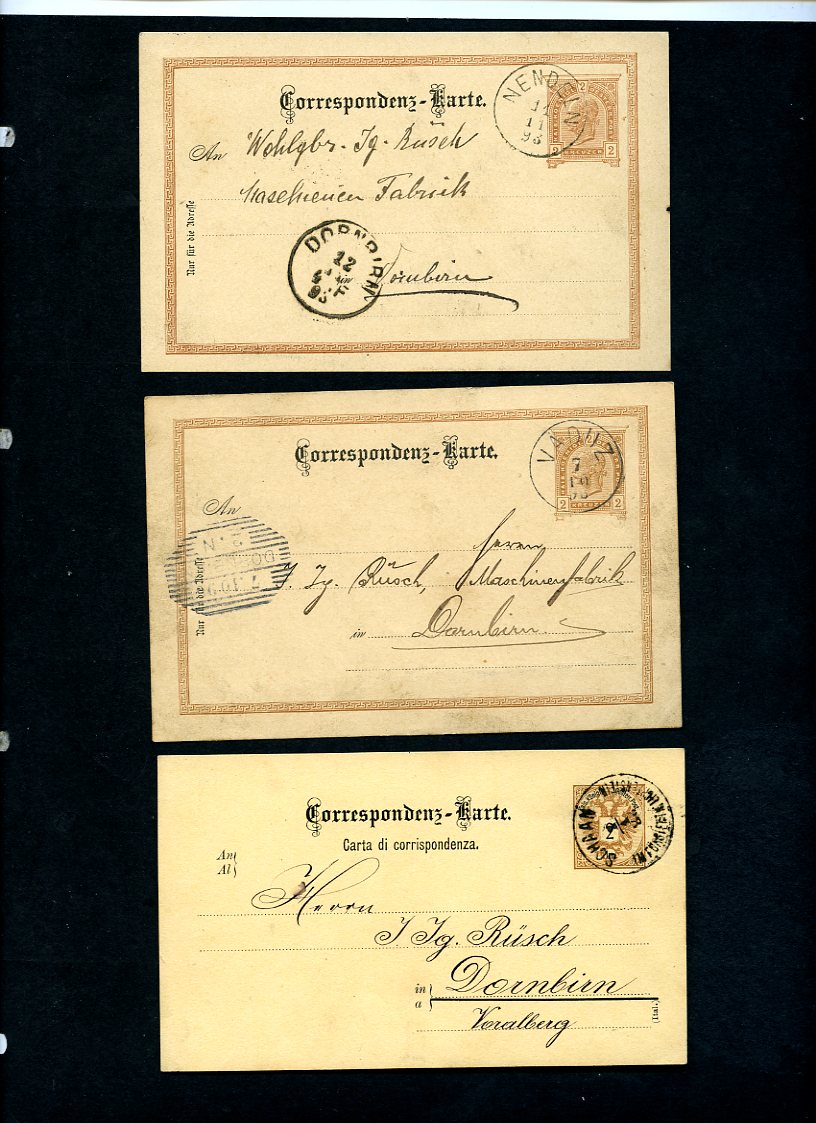 Correspondenz-Karte.
NENDELN
11
93
2
2 KREUZER 2
An Wohlgbr. Ig. Rusch
Maschienen Fabrik
Nur für die Adresse
DORNBIRN
12
93
in Dornbirn
Correspondenz-Karte.
VADUZ
7
10
2 KREUZER 2
An
Herrn
J. Ig. Rüsch, Maschinenfabrik
Nur für die Adresse
in Dornbirn.
Correspondenz-Karte.
Carta di corrispondenza.
SCHAAN
2
An
Al
Herrn
J Ig. Rüsch
in
a
Dornbirn
Voralberg
(Ital.)